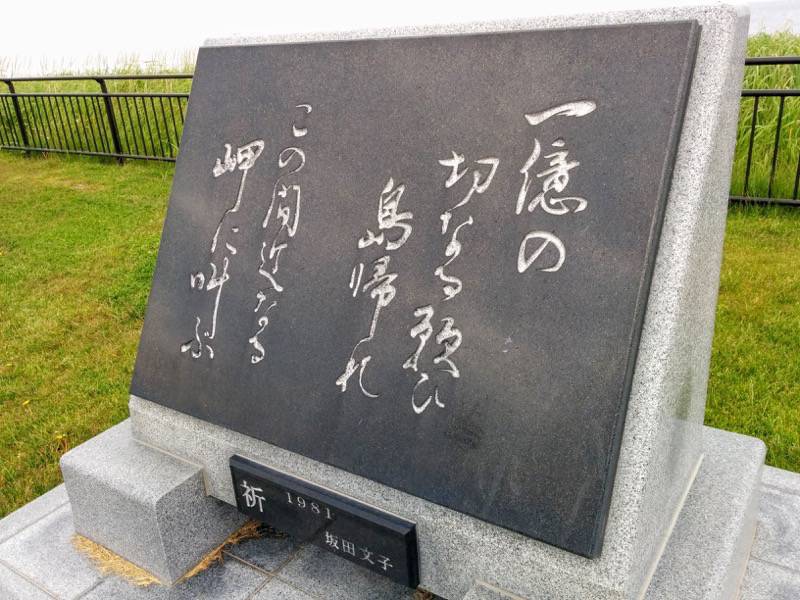 一億の
切なる願ひ
島帰れ
この間近なる
岬に叫ぶ
祈 1981
坂田文子